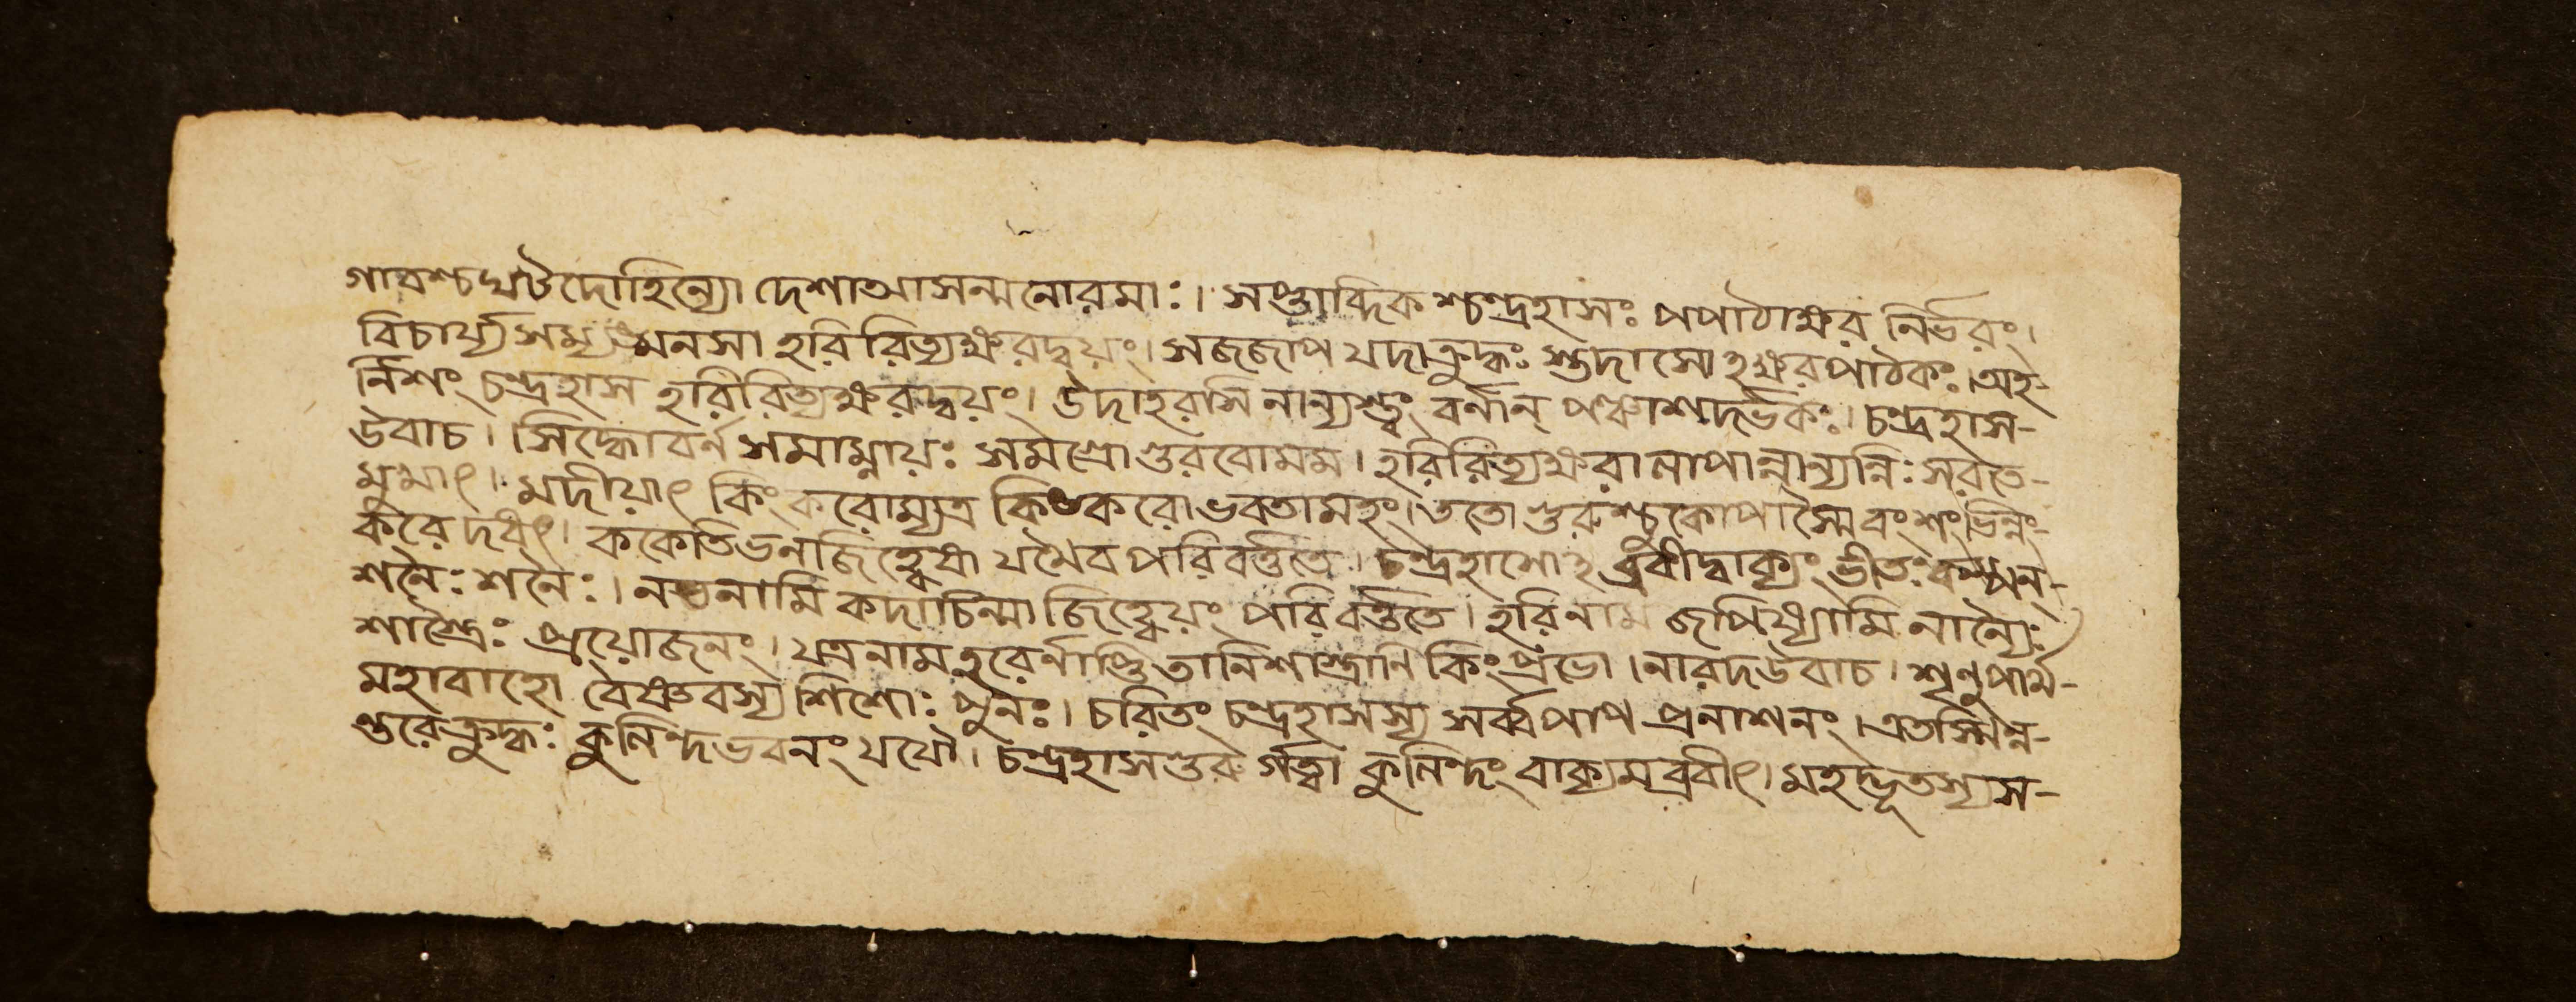 গাবশ্চঘটদোহিন্যো দেশাআসন্মনোরমাঃ। সপ্তাব্দিকশ্চন্দ্রহাসঃ পপাঠাক্ষর নির্ভরং।
বিচার্য্য সম্যঙ্মনসা হরি রিত্যক্ষরদ্বয়ং। স জজাপ যদা ক্রুদ্ধঃ স্তদাসোঽক্ষরপাঠকঃ। অহ-
র্নিশং চন্দ্রহাস হরিরিত্যক্ষরদ্বয়ং। উদাহরসি নান্যস্ত্বং বর্নান্ পঞ্চাশদর্ভকঃ। চন্দ্রহাস-
উবাচ।। সিদ্ধোবর্ন সমাম্নায়ঃ সমপ্রো গুরবোমম। হরিরিত্যক্ষরানাপান্নান্যন্নিঃ সরতে-
মুখাৎ। মদীয়াৎ কিং করোম্যত্র কিঙ্করো ভবতামহং। ততো গুরুশ্চুকোপাস্মৈ বংশং ভিন্নং-
করে দধৎ। ককেতিভনজিহ্বেষা যথৈব পরিবর্ত্ততে। চন্দ্রহাসোঽব্রবীদ্বাক্যং ভীতঃ কম্পন-
শনৈঃ শনৈঃ। নভনামি কদাচিন্মা জিহ্বেয়ং পরিবর্ত্ততে। হরিনাম জপিষ্যামি নান্যৈঃ
শাস্ত্রৈঃ প্রয়োজনং। যত্রনাম হরের্নাস্তি তানিশাস্ত্রানি কিংপ্রভো। নারদউবাচ। শৃনুপার্থ-
মহাবাহো বৈষ্ণবস্য শিশোঃ পুনঃ। চরিতং চন্দ্রহাসস্য সর্ব্বপাপ প্রনাশনং। এতস্মিন্ন-
ন্তরেক্রুদ্ধঃ কুনিন্দভবনং যযৌ। চন্দ্রহাসগুরু র্গত্বা কুনিন্দং বাক্যমব্রবীৎ। মহদ্ভূতস্যস-